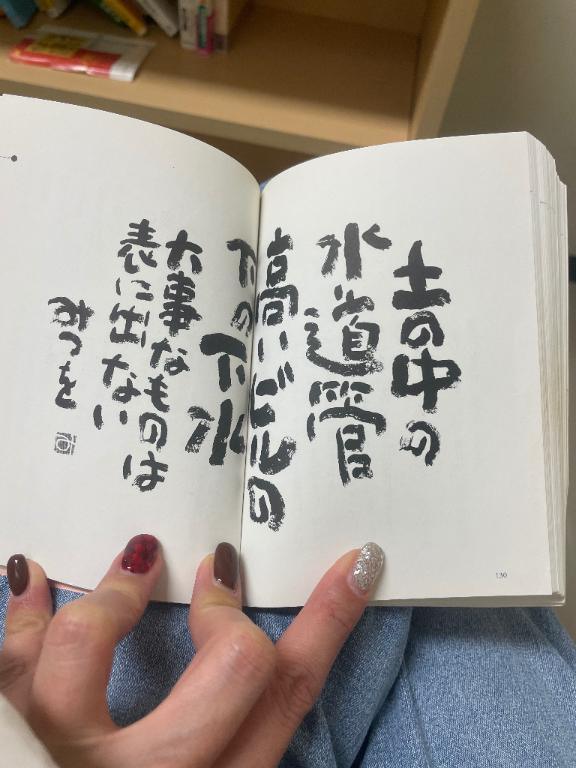 土の中の
水道管
高いビルの
下の下水
大事なものは
表に出ない
みつを
130